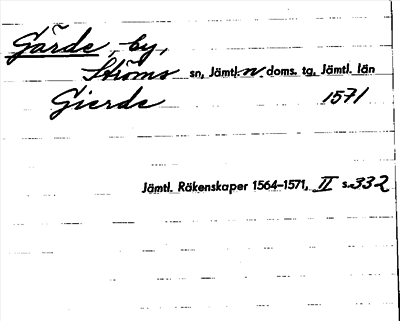 Gärde, by,
Ströms sn, Jämtl. n doms. tg, Jämtl. län
Gierde 1571
Jämtl. Räkenskaper 1564–1571, II s. 332